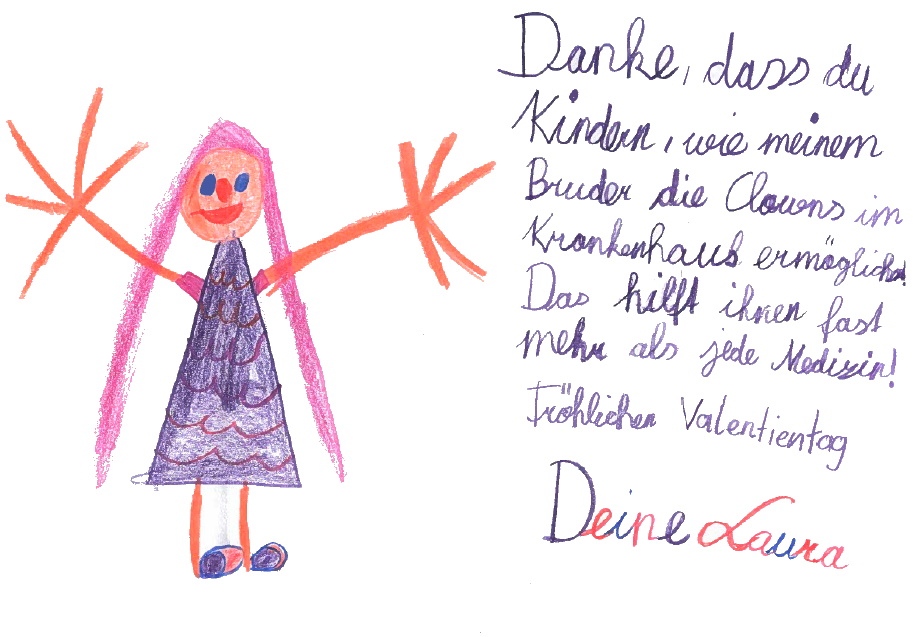 Danke, dass du
Kindern, wie meinem
Bruder die Clowns im
Krankenhaus ermöglichst!
Das hilft ihnen fast
mehr als jede Medizin!
Fröhlichen Valentientag
Deine Laura